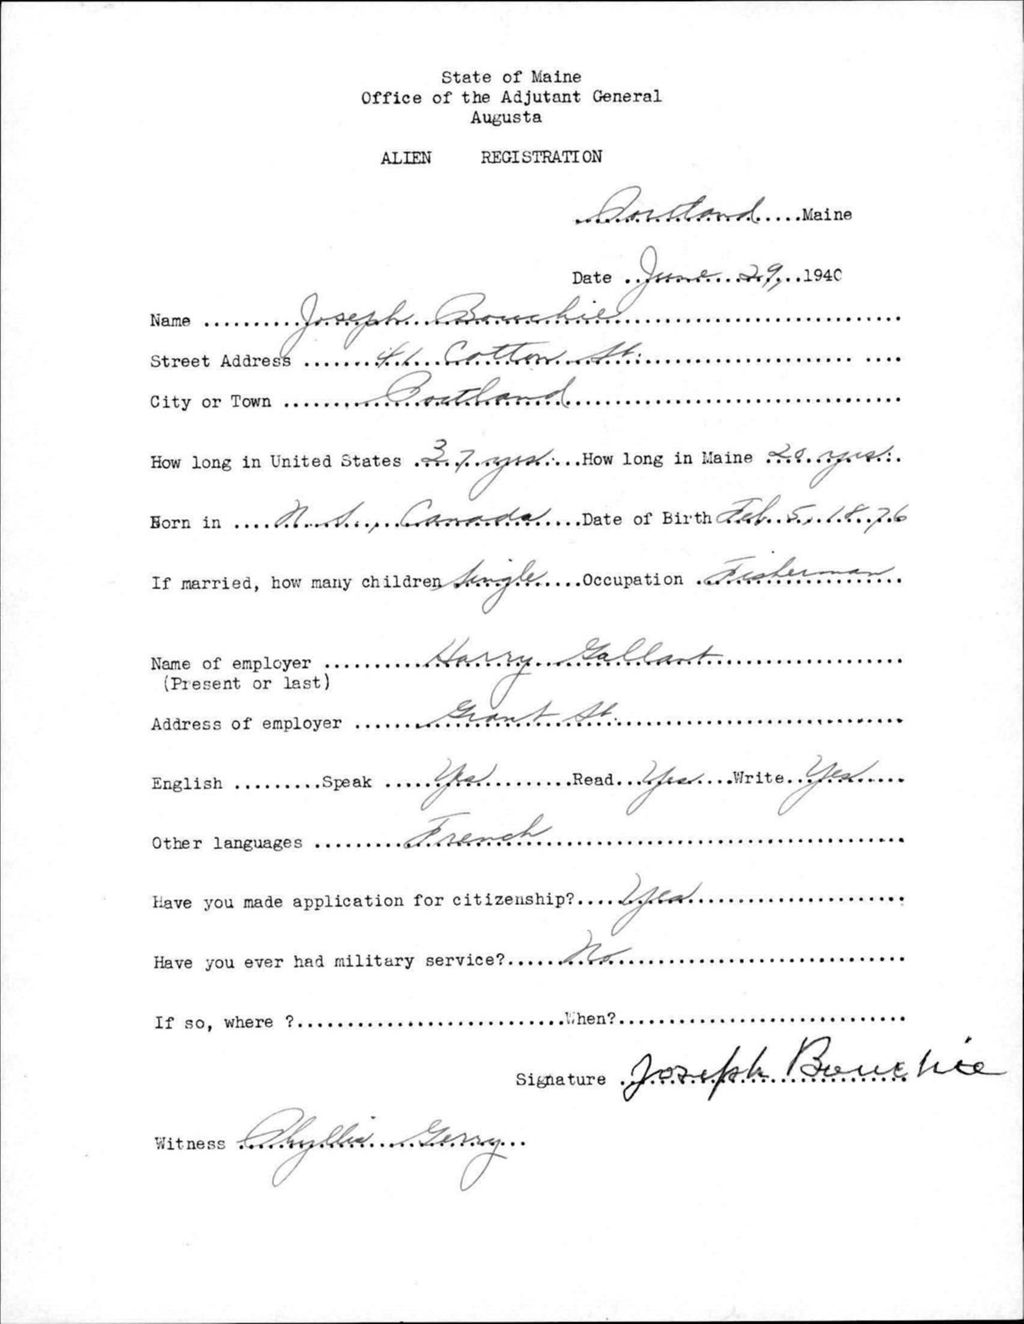 State of Maine
Office of the Adjutant General
Augusta
ALIEN REGISTRATION
Portland Maine
Date June 29, 1940
Name Joseph Bouchie
Street Address 41 Cotton St.
City or Town Portland
How long in United States 37 yrs. How long in Maine 20 yrs.
Born in N.S., Canada Date of Birth Feb. 5, 1876
If married, how many children Single Occupation Fisherman
Name of employer Harry Gallant
(Present or last)
Address of employer Grant St.
English Speak Yes Read Yes Write Yes
Other languages French
Have you made application for citizenship? Yes
Have you ever had military service? No
If so, where ? When?
Signature Joseph Bouchie
Witness Phyllis Gerry